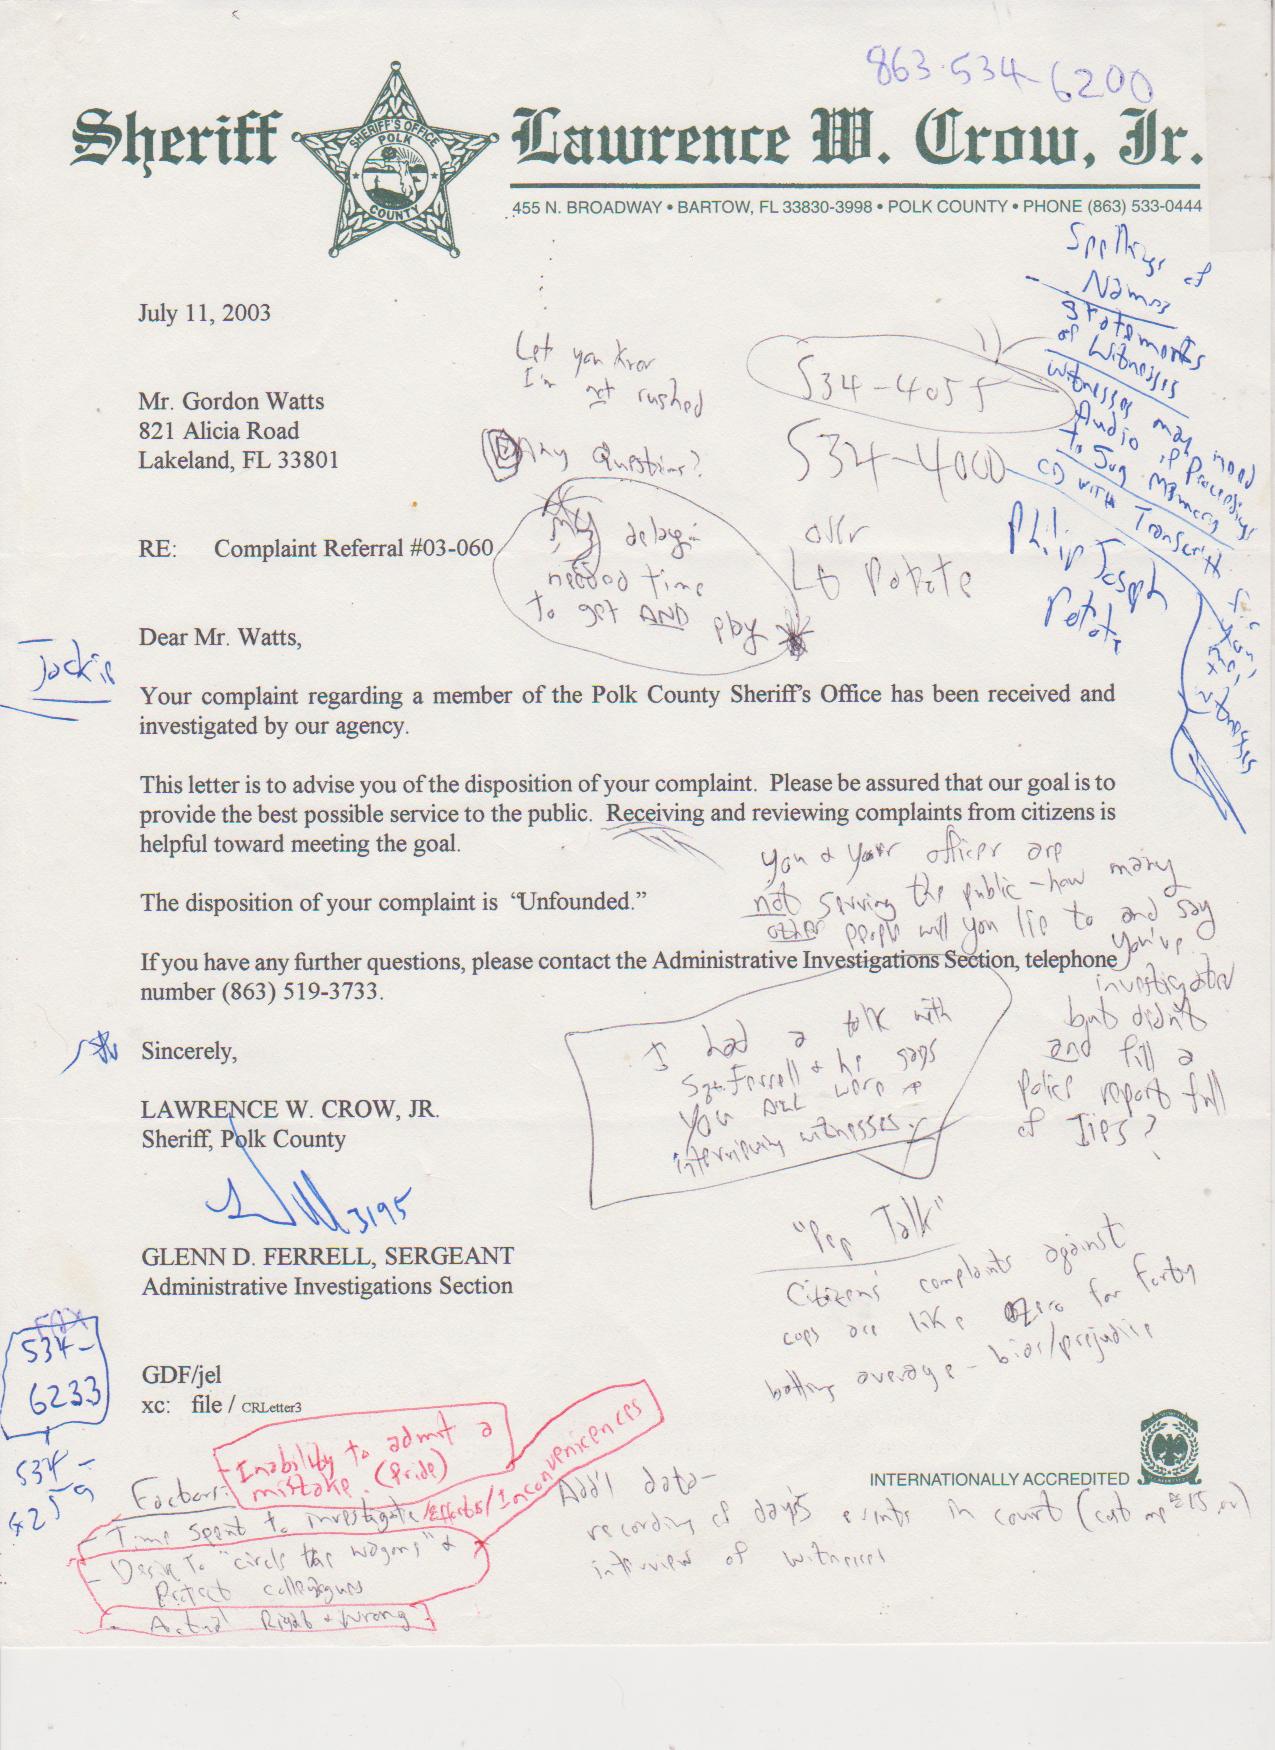 863-534-6200
Sheriff
SHERIFF'S OFFICE
POLK
COUNTY
Lawrence W. Crow, Jr.
455 N. BROADWAY • BARTOW, FL 33830-3998 • POLK COUNTY • PHONE (863) 533-0444
Spellings of
Names
Statements
of Witnesses
Witnesses may need
Audio of Proceedings
to Jog Memory
CD with Transcript
for
you,
me,
witnesses
July 11, 2003
Let you know
I'm not rushed
534-4055
Mr. Gordon Watts
821 Alicia Road
Lakeland, FL 33801
Any Questions?
534-4000
RE: Complaint Referral #03-060
My delay:
needed time
to get AND pay
Philip Joseph
Jackie
Dear Mr. Watts,
Your complaint regarding a member of the Polk County Sheriff's Office has been received and
investigated by our agency.
This letter is to advise you of the disposition of your complaint. Please be assured that our goal is to
provide the best possible service to the public. Receiving and reviewing complaints from citizens is
helpful toward meeting the goal.
you & your officer are
not serving the public - how many
other people will you lie to and say
you've
investigated
but didn't
and fill a
police report full
of lies?
The disposition of your complaint is "Unfounded."
If you have any further questions, please contact the Administrative Investigations Section, telephone
number (863) 519-3733.
I had a talk with
Sgt. Ferrell & he says
you were
interviewing witnesses.
Sincerely,
LAWRENCE W. CROW, JR.
Sheriff, Polk County
3195
GLENN D. FERRELL, SERGEANT
Administrative Investigations Section
"Pep Talk"
Citizens' complaints against
cops are like zero for forty
batting average - bias/prejudice
Fax
534-
6233
534-
6259
GDF/jel
xc: file / CRLetter3
INTERNATIONALLY ACCREDITED
Factors:
Inability to admit a
mistake. (Pride)
- Time spent to investigate/Efforts/Inconveniences
- Desire To "circle the wagons" &
Protect colleagues
- Actual Right & Wrong
Add'l data-
recording of day's events in court (cost me $15.00)
interview of witnesses